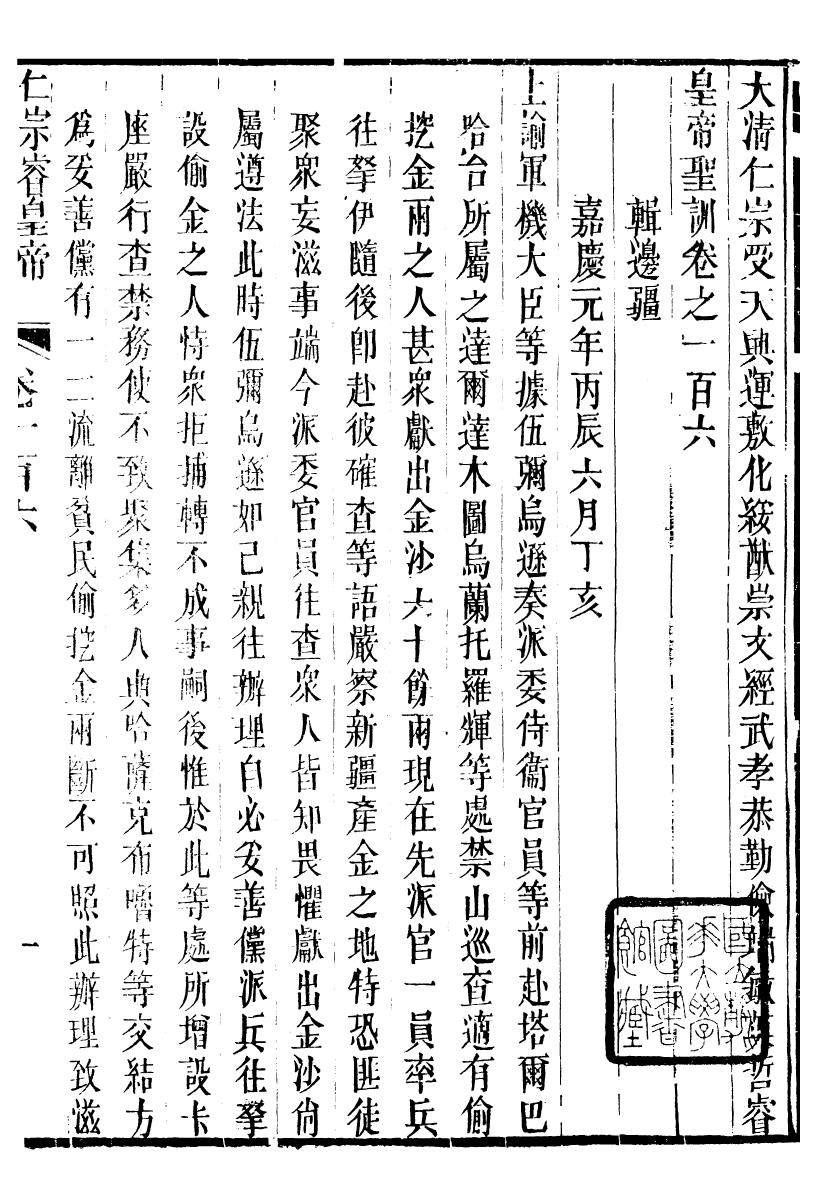 大清仁宗受天興運敷化綏猷崇文經武孝恭勤儉端敏英哲睿
皇帝聖訓卷之一百六
輯邊疆
嘉慶元年丙辰六月丁亥
上諭軍機大臣等據伍彌烏遜奏派委侍衞官員等前赴塔爾巴
哈台所屬之達爾達木圖烏蘭托羅輝等處禁山巡查適有偷
挖金兩之人甚衆獻出金沙六十餘兩現在先派官一員率兵
往拏伊隨後卽赴彼確查等語嚴察新疆產金之地特恐匪徒
聚衆妄滋事端今派委官員往查衆人皆知畏懼獻出金沙尙
屬遵法此時伍彌烏遜如己親往辦理自必妥善儻派兵往拏
設偷金之人恃衆拒捕轉不成事嗣後惟於此等處所增設卡
座嚴行查禁務使不致聚集多人與哈薩克布嚕特等交結方
爲妥善儻有一二流離貧民偷挖金兩斷不可照此辦理致滋
仁宗睿皇帝
卷一百六
一
國立北平大學圖書館藏